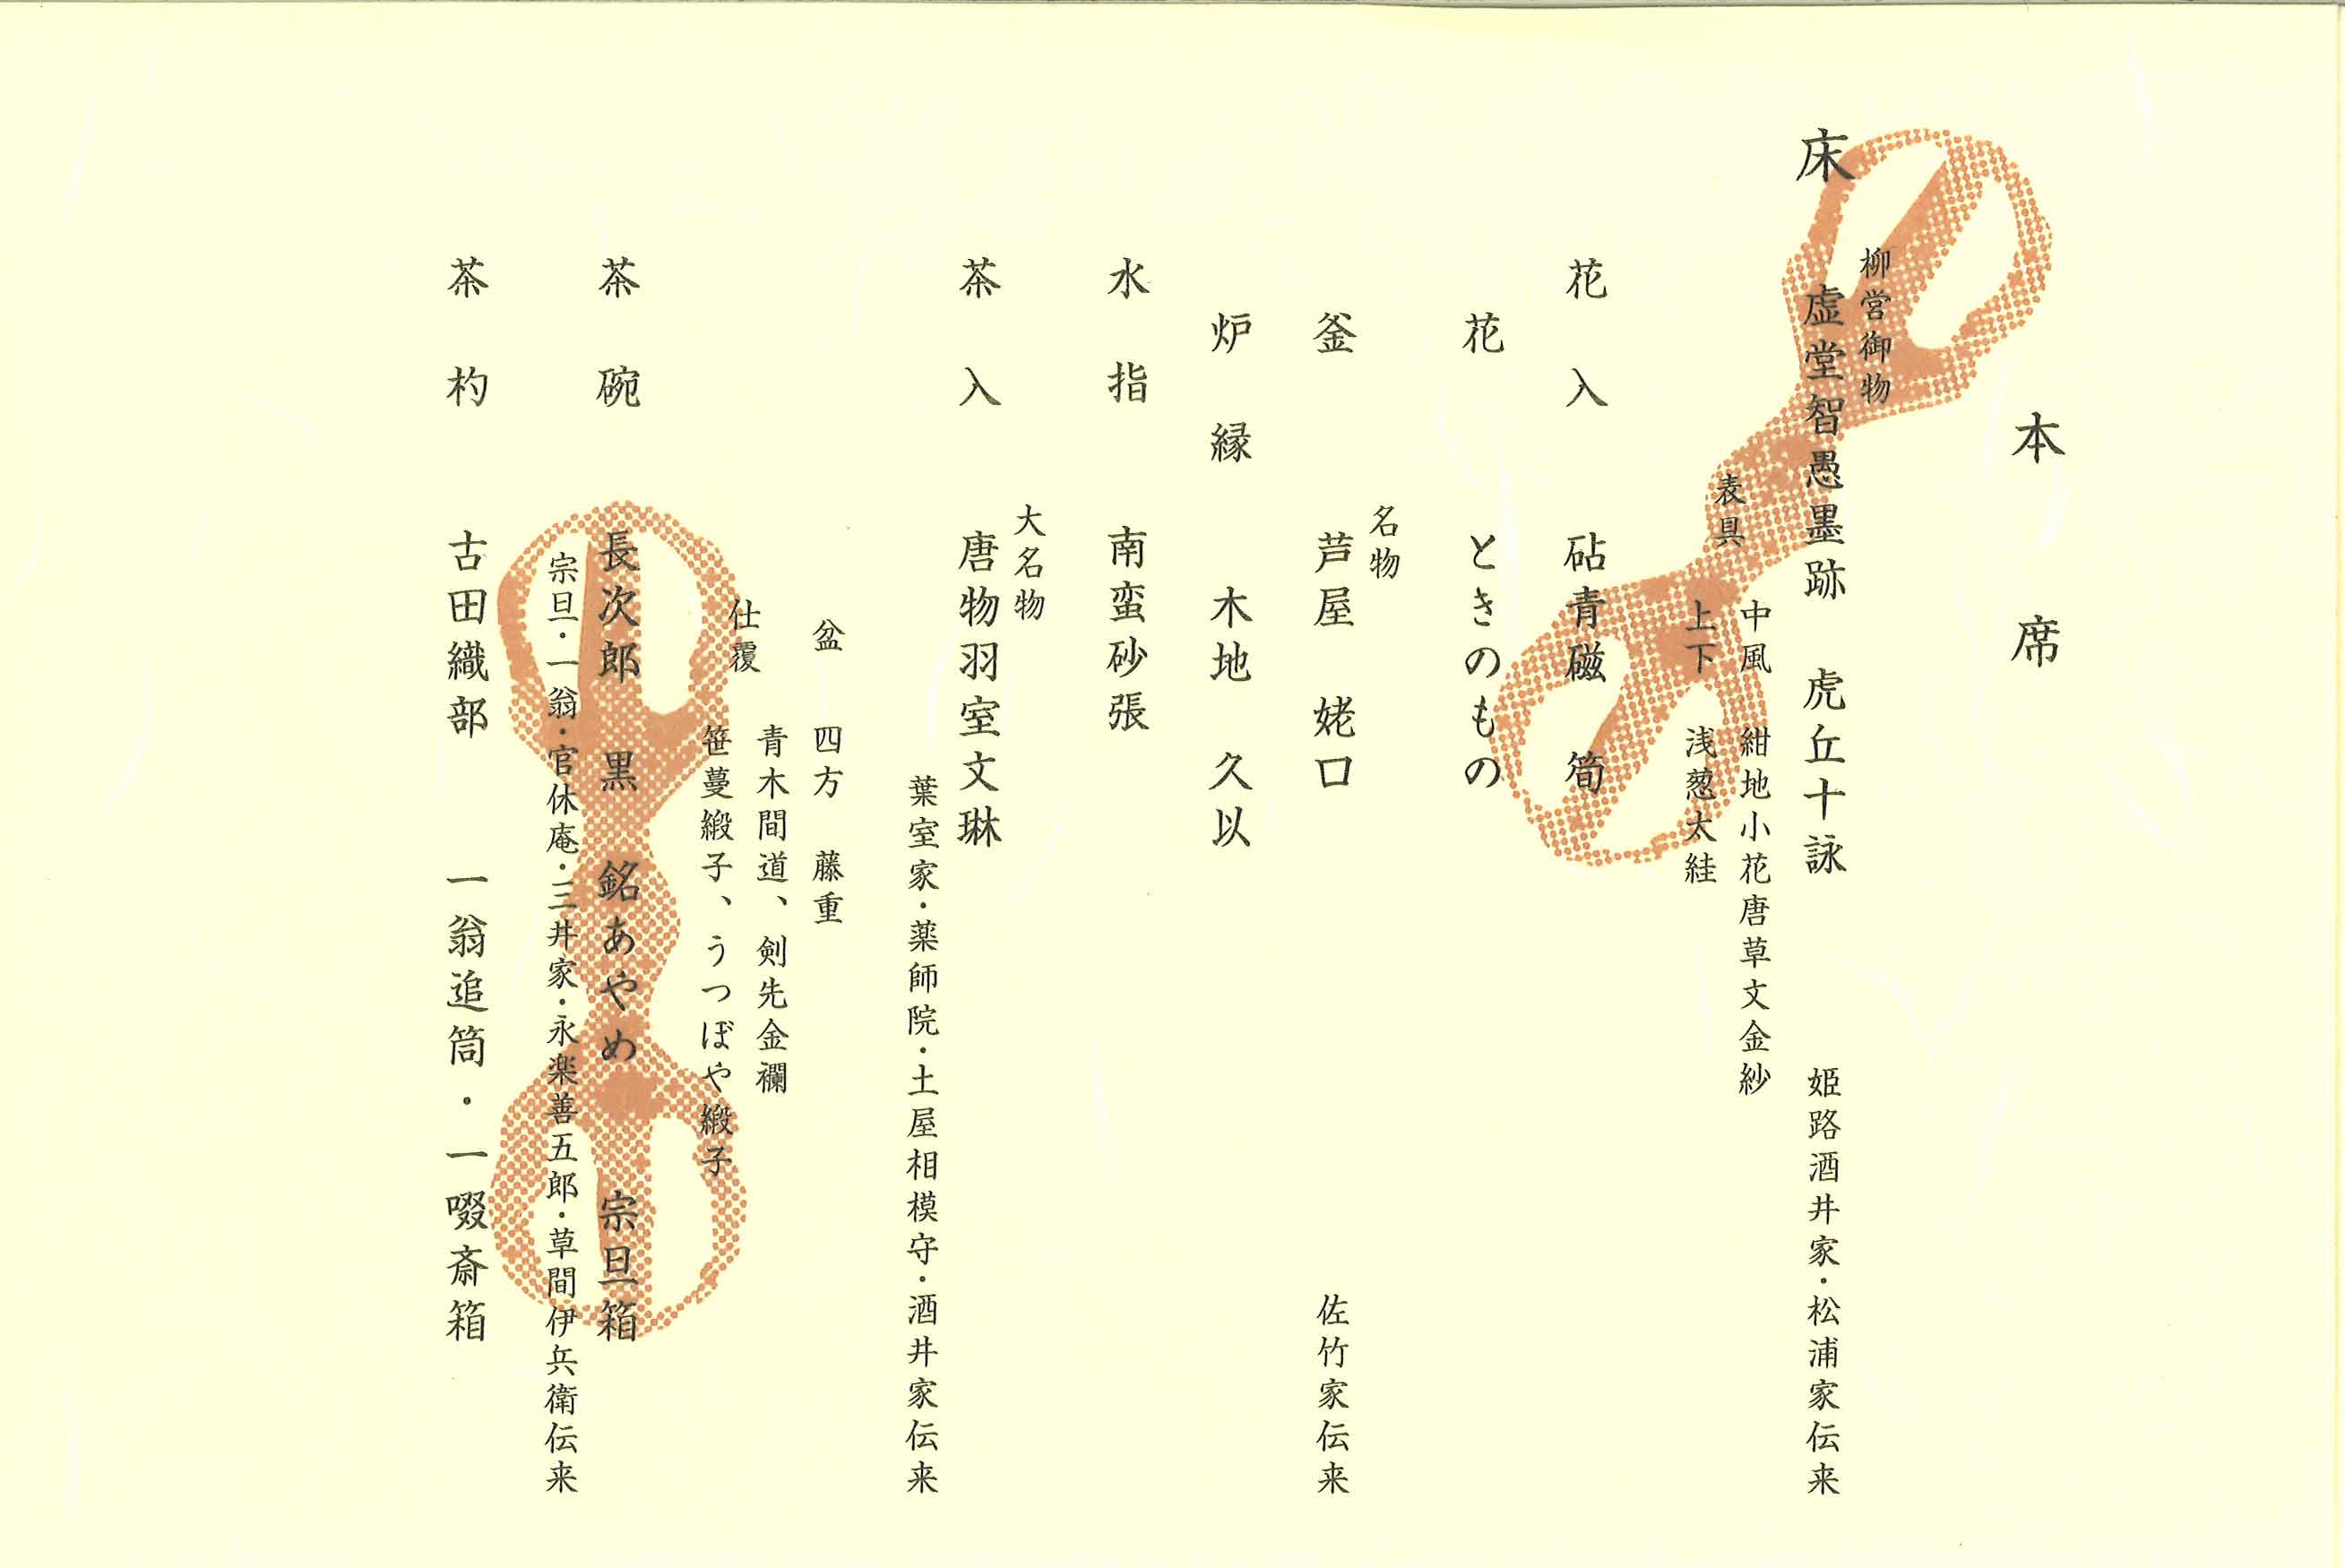 本席
柳営御物
床 虚堂智愚墨跡 虎丘十詠 姫路酒井家・松浦家伝来
表具 中風 紺地小花唐草文金紗
上下 浅葱太絓
花入 砧青磁 筍
花 ときのもの
名物
釜 芦屋 姥口 佐竹家伝来
炉縁 木地 久以
水指 南蛮砂張
大名物
茶入 唐物羽室文琳
葉室家・薬師院・土屋相模守・酒井家伝来
盆 四方 藤重
仕覆 青木間道、剣先金襴
笹蔓緞子、うつぼや緞子
茶碗 長次郎 黒 銘あやめ 宗旦箱
宗旦・一翁・官休庵・三井家・永楽善五郎・草間伊兵衛伝来
茶杓 古田織部 一翁追筒・一啜斎箱